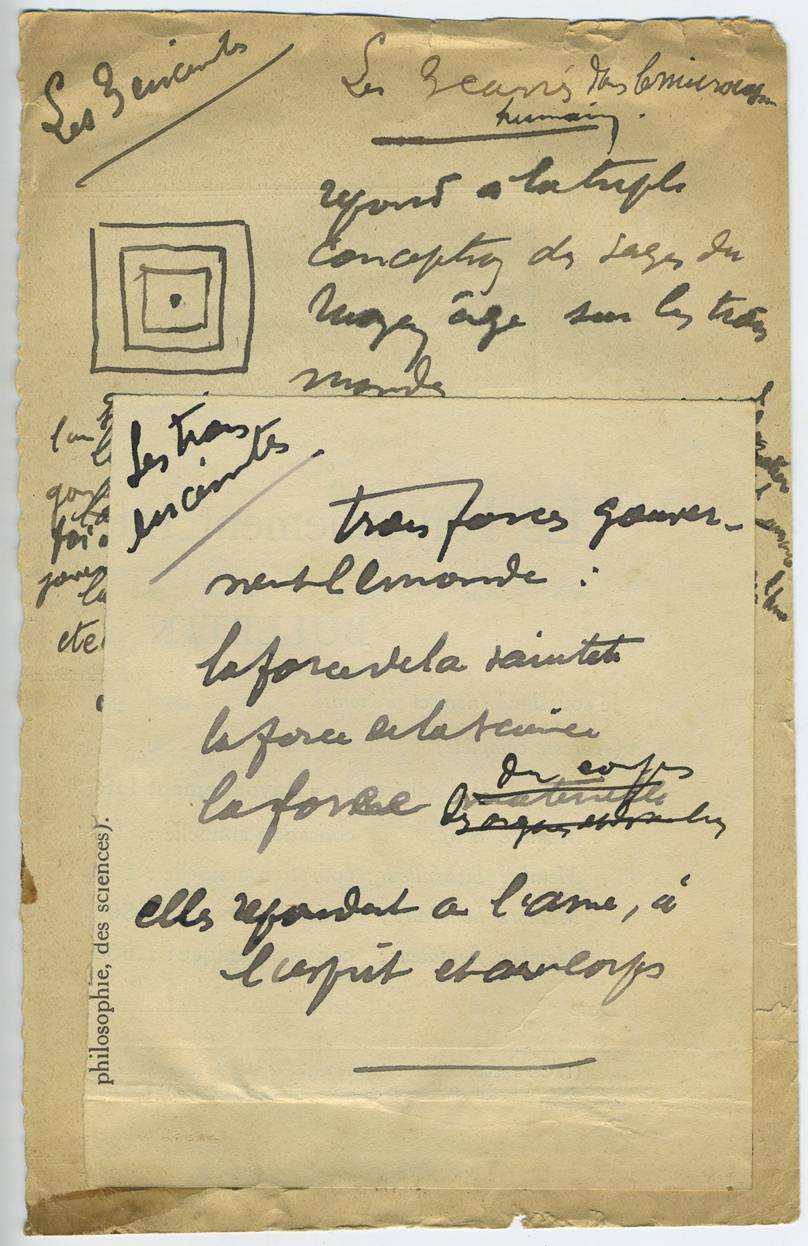 Les 3 enceintes
Les 3 carrés dans le microcosme
humain.
repond à la triple
conception des sages du
Moyen âge sur les trois
mondes
Les trois
enceintes
trois forces gouver-
nent le monde :
la force de la sainteté
la force de la science
du corps
la force materielle
elles repondent a l'ame, à
l'esprit et au corps
philosophie, des sciences).